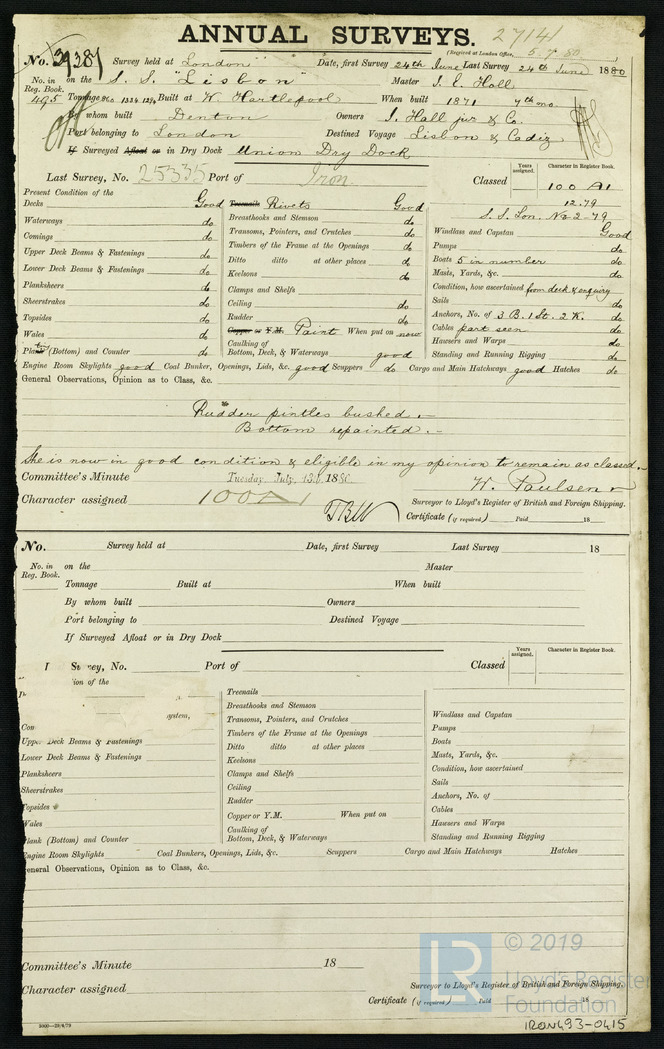 ANNUAL SURVEYS.
27141
(Received at London Office, 5.7.80
No. 39281 Survey held at London Date, first Survey 24th June Last Survey 24th June 1880
No. in Reg. Book. 495 on the S. S. "Lisbon" Master J. E. Hall
Tonnage Built at W. Hartlepool When built 1871 7th mo.
By whom built Denton Owners J. Hall jur & Co.
Port belonging to London Destined Voyage Lisbon & Cadiz
If Surveyed Afloat or in Dry Dock Union Dry Dock
Last Survey, No. 25335 Port of Iron. Classed
Years assigned. Character in Register Book.
100 A1
12.79
S. S. Lon. No 2-79
Present Condition of the
Decks Good Treenails Rivets Good
Waterways do Breasthooks and Stemson do Windlass and Capstan Good
Comings do Transoms, Pointers, and Crutches do Pumps do
Upper Deck Beams & Fastenings do Timbers of the Frame at the Openings do Boats 5 in number do
Lower Deck Beams & Fastenings do Ditto ditto at other places do Masts, Yards, &c. do
Planksheers do Keelsons do Condition, how ascertained from deck & enquiry
Sheerstrakes do Clamps and Shelfs Sails do
Topsides do Ceiling do Anchors, No. of 3 B. 1 St. 2 K. do
Wales do Rudder do Cables part seen do
Copper or Y.M. Paint When put on now Hawsers and Warps do
Plank (Bottom) and Counter do Caulking of Bottom, Deck, & Waterways good Standing and Running Rigging do
Engine Room Skylights good Coal Bunker, Openings, Lids, &c. good Scuppers do Cargo and Main Hatchways good Hatches do
General Observations, Opinion as to Class, &c.
Rudder pintles bushed.
Bottom repainted.
She is now in good condition & eligible in my opinion to remain as classed.
Committee's Minute Tuesday July, 13th 1880. W. Paulsen
Character assigned 100A1 Surveyor to Lloyd's Register of British and Foreign Shipping.
Certificate (if required) Paid 18
No. Survey held at Date, first Survey Last Survey 18
No. in Reg. Book. on the Master
Tonnage Built at When built
By whom built Owners
Port belonging to Destined Voyage
If Surveyed Afloat or in Dry Dock
Survey, No. Port of Classed
Years assigned. Character in Register Book.
ion of the
Treenails
Breasthooks and Stemson Windlass and Capstan
Com Transoms, Pointers, and Crutches Pumps
Upper Deck Beams & Fastenings Timbers of the Frame at the Openings Boats
Lower Deck Beams & Fastenings Ditto ditto at other places Masts, Yards, &c.
Planksheers Keelsons Condition, how ascertained
Sheerstrakes Clamps and Shelfs Sails
Topsides Ceiling Anchors, No. of
Wales Rudder Cables
Copper or Y.M. When put on Hawsers and Warps
Plank (Bottom) and Counter Caulking of Bottom, Deck, & Waterways Standing and Running Rigging
Engine Room Skylights Coal Bunkers, Openings, Lids, &c. Scuppers Cargo and Main Hatchways Hatches
General Observations, Opinion as to Class, &c.
Committee's Minute 18
Character assigned Surveyor to Lloyd's Register of British and Foreign Shipping.
Certificate (if required) Paid 18
LR
© 2019
Lloyd's Register
Foundation
IRON493-0415